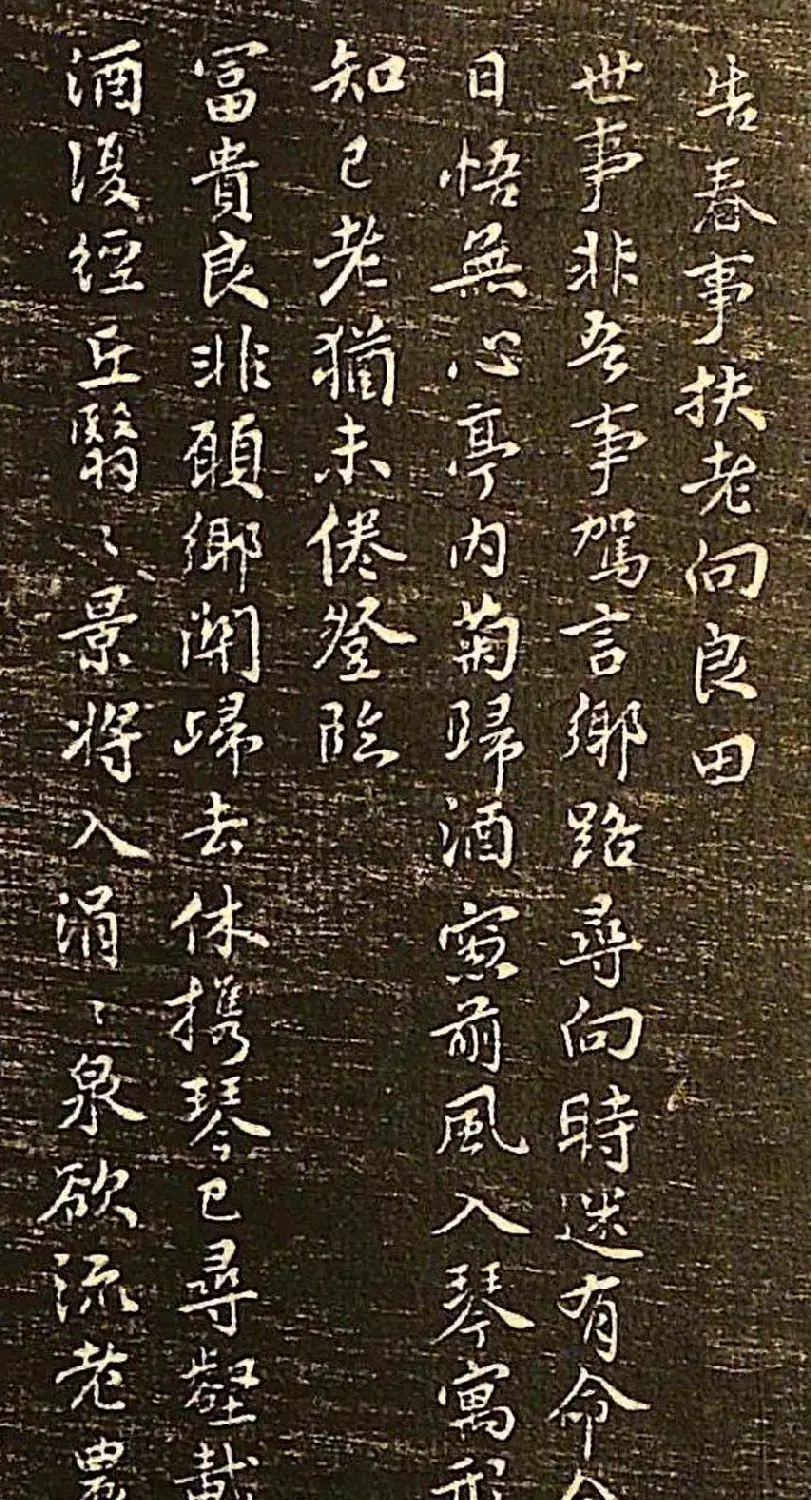 告春事扶老向良田
世事非吾事駕言鄉路尋向時迷有命今
日悟無心亭內菊歸酒窻前風入琴寓形
知已老猶未倦登臨
富貴良非願鄉關歸去休携琴已尋壑載
酒復經丘翳〻景將入涓〻泉欲流老農